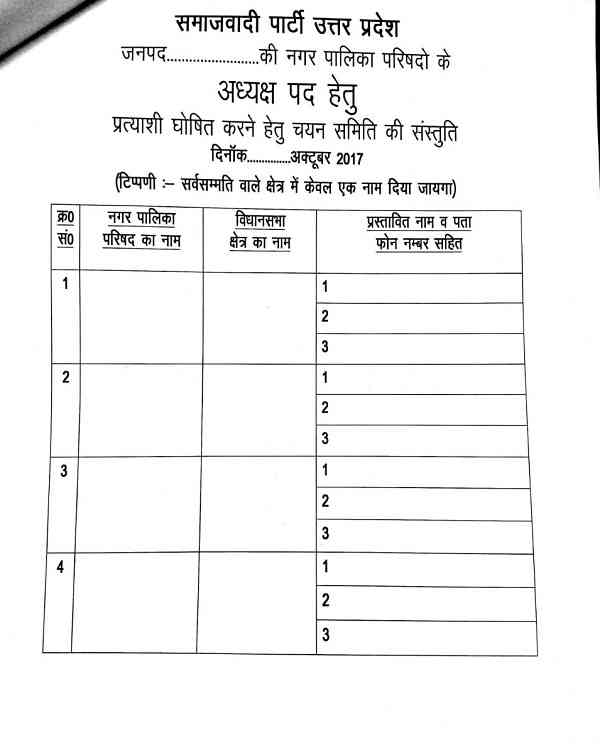 समाजवादी पार्टी उत्तर प्रदेश
जनपद.......................की नगर पालिका परिषदो के
अध्यक्ष पद हेतु
प्रत्याशी घोषित करने हेतु चयन समिति की संस्तुति
दिनॉक..............अक्टूबर 2017
(टिप्पणी :– सर्वसम्मति वाले क्षेत्र में केवल एक नाम दिया जायगा)
क्र0 सं0
नगर पालिका परिषद का नाम
विधानसभा क्षेत्र का नाम
प्रस्तावित नाम व पता फोन नम्बर सहित
1
1
2
3
2
1
2
3
3
1
2
3
4
1
2
3